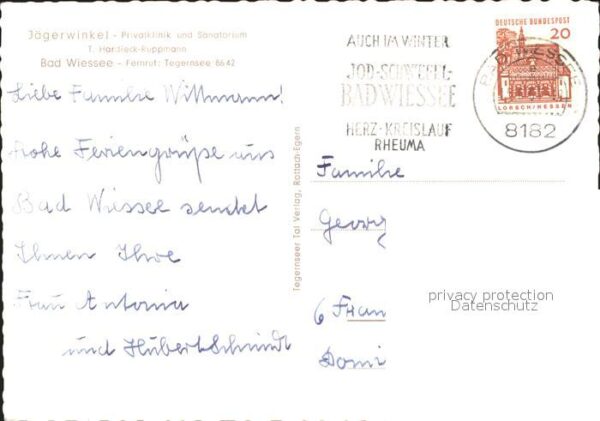 Jägerwinkel - Privatklinik und Sanatorium
T. Hardieck-Ruppmann
Bad Wiessee - Fernruf: Tegernsee 6642
Liebe Familie Wittmann!
frohe Feriengrüße aus
Bad Wiessee sendet
Ihnen Ihre
Frau Antonia
und Hubert Schmidt
Tegernseer Tal Verlag, Rottach-Egern
AUCH IM WINTER
JOD-SCHWEFEL-
BAD WIESSEE
HERZ-KREISLAUF
RHEUMA
BAD WIESSEE
8182
DEUTSCHE BUNDESPOST
20
LORSCH/HESSEN
Familie
Georg
6 Fran
Domi
privacy protection
Datenschutz